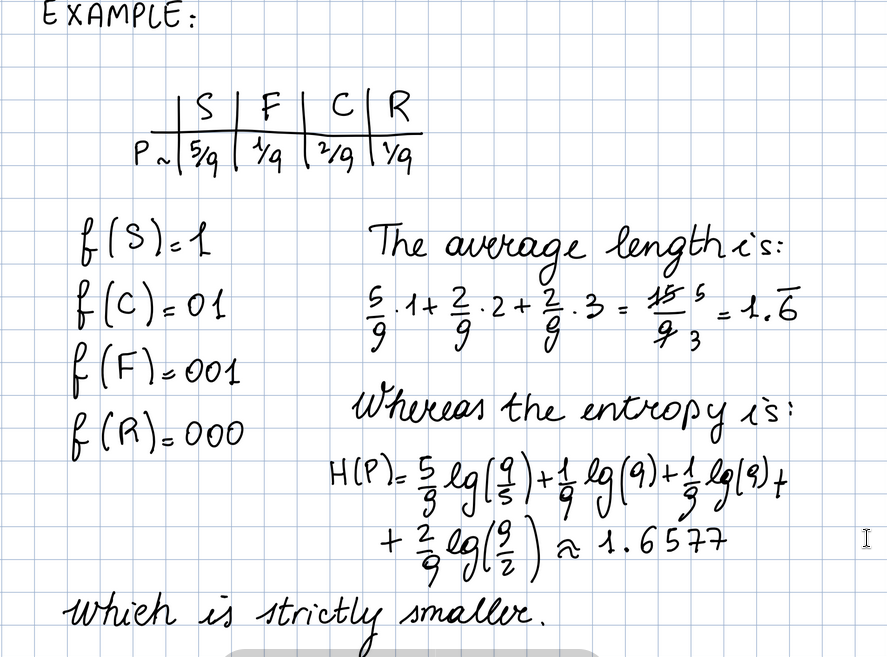 EXAMPLE:
S F C R
P~ 5/9 1/9 2/9 1/9
f(S)=1
f(C)=01
f(F)=001
f(R)=000
The average length is:
5/9·1+2/9·2+2/9·3=15/9 5/3=1.6̅
Whereas the entropy is:
H(P)=5/9 lg(9/5)+1/9 lg(9)+1/9 lg(9)+
+2/9 lg(9/2)≈1.6577
which is strictly smaller.